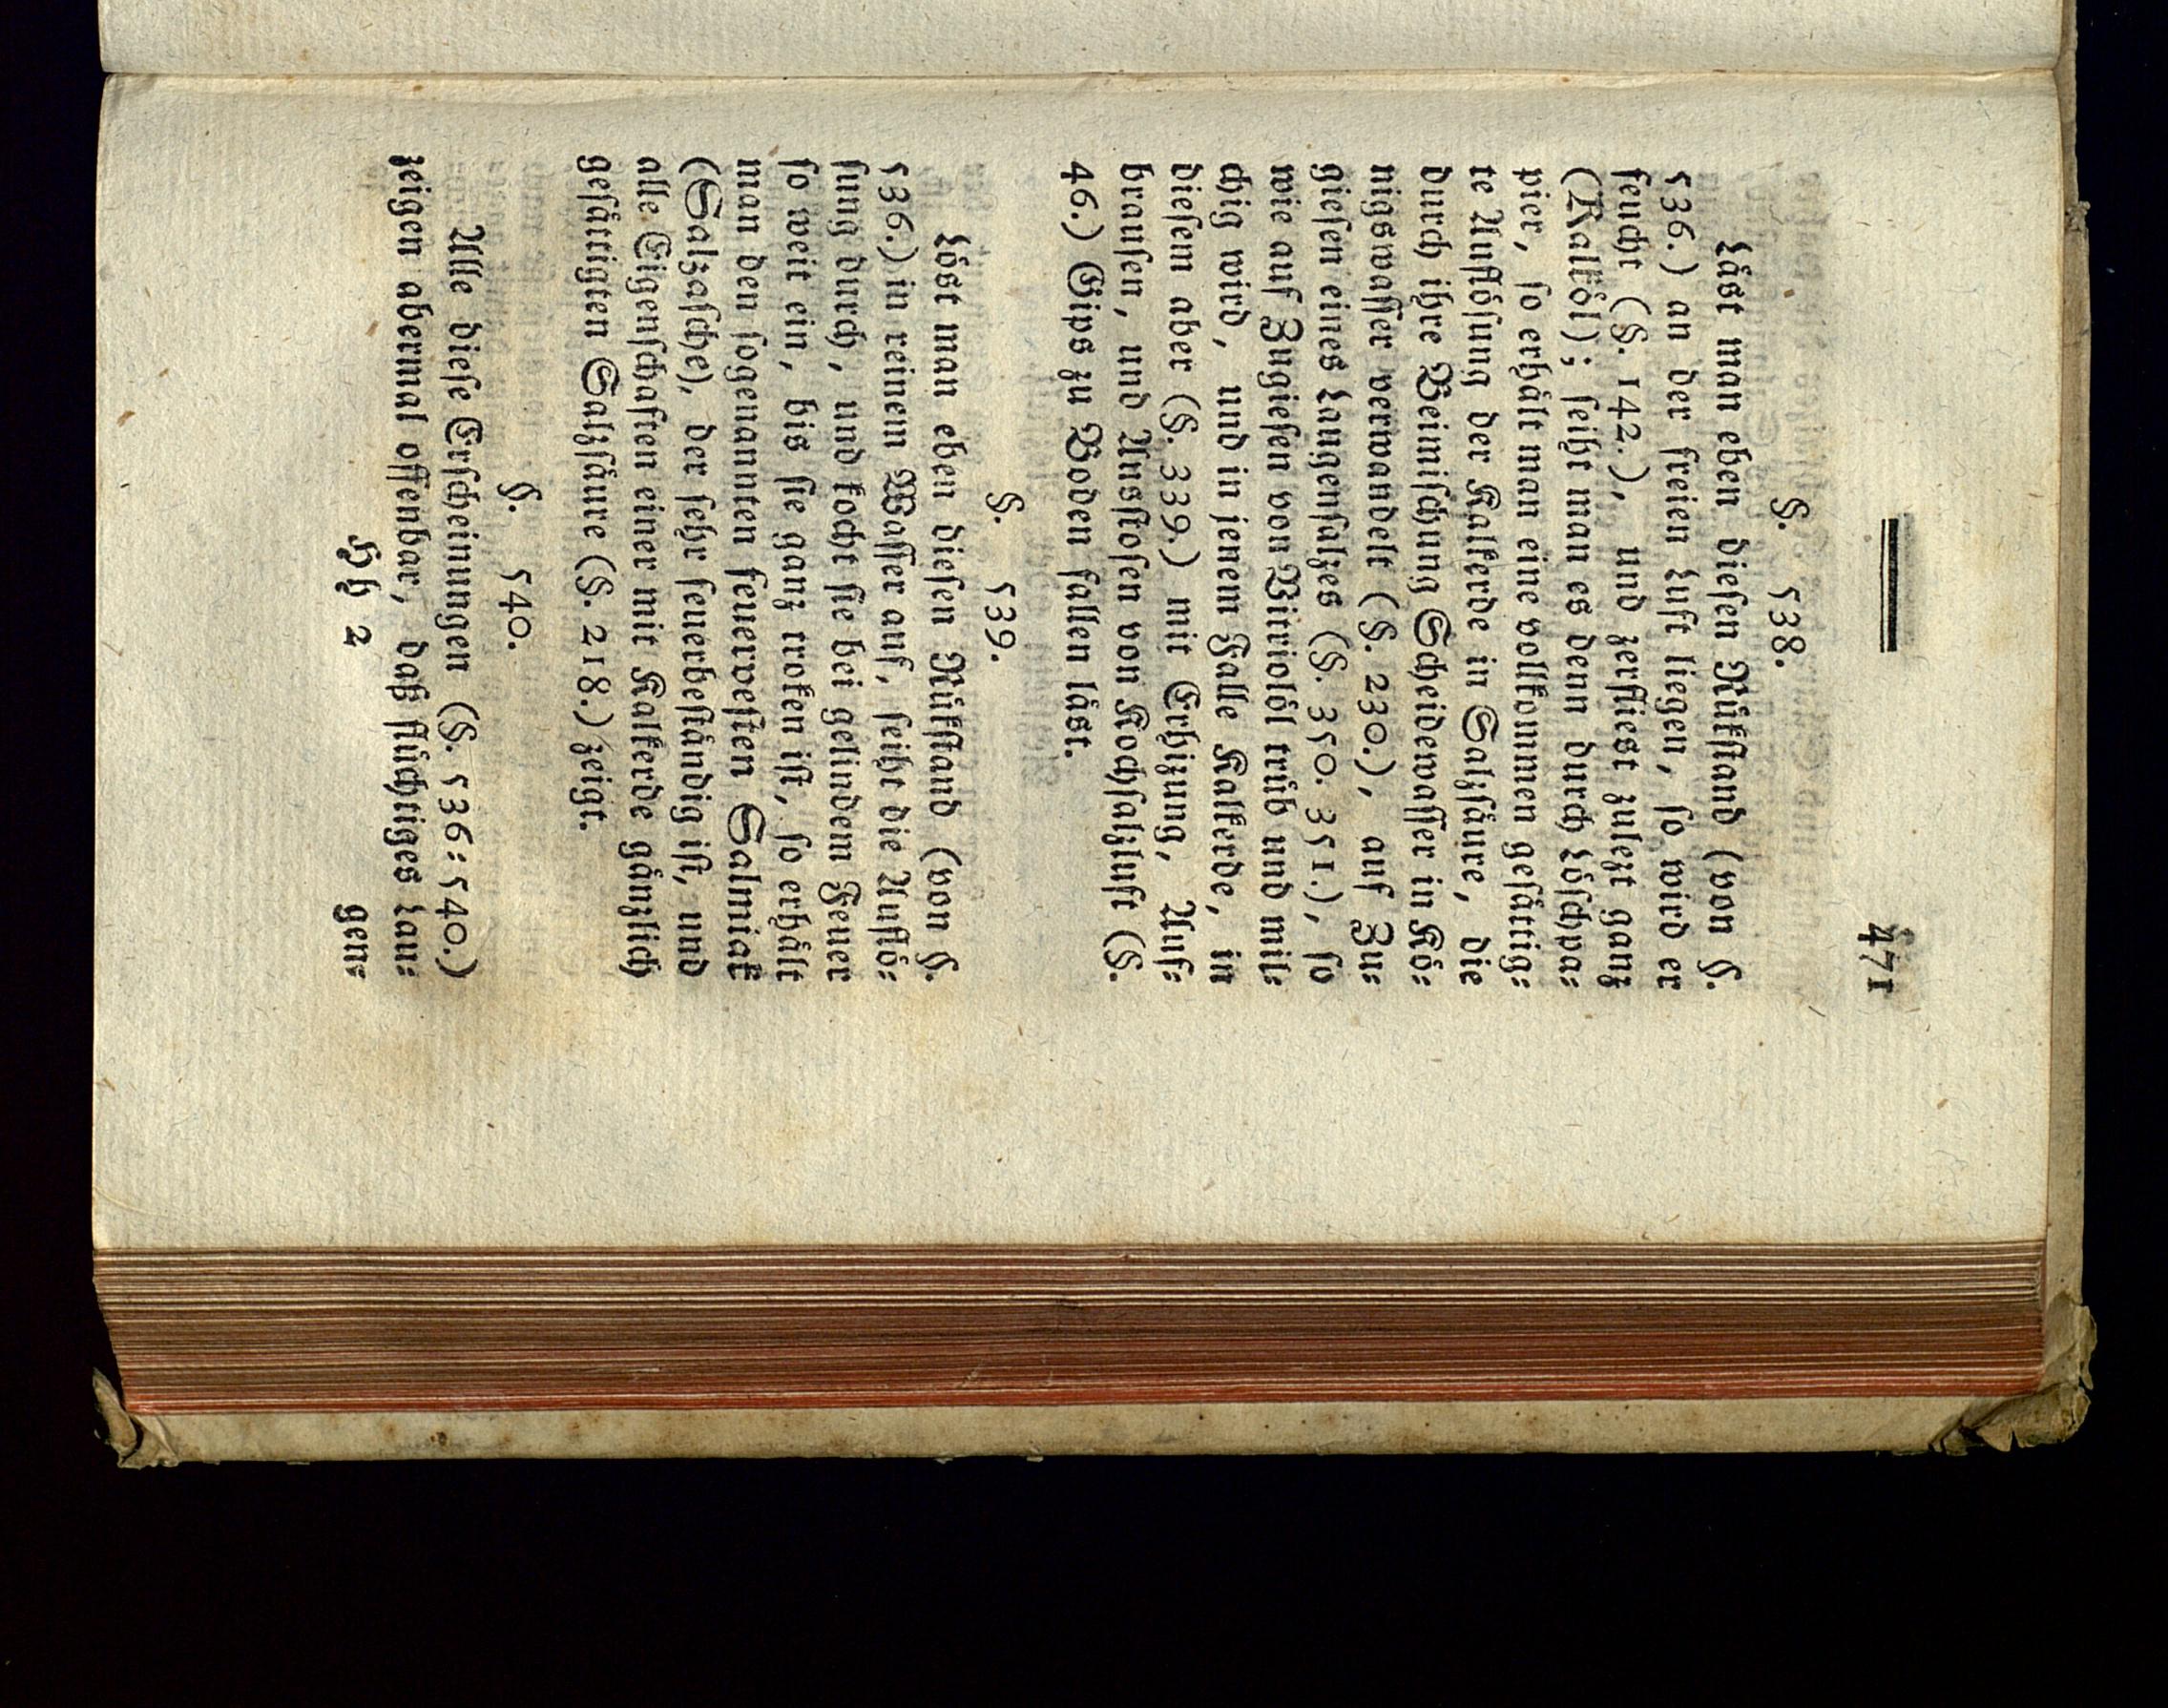 471
§. 538.
Läst man eben diesen Rükstand (von §.
536.) an der freien Luft liegen, so wird er
feucht (§. 142.), und zerfliest zulezt ganz
(Kalköl); seiht man es denn durch Löschpa⸗
pier, so erhält man eine vollkommen gesättig⸗
te Auflösung der Kalkerde in Salzsäure, die
durch ihre Beimischung Scheidewasser in Kö⸗
nigswasser verwandelt (§. 230.), auf Zu⸗
giesen eines Laugensalzes (§. 350. 351.), so
wie auf Zugiesen von Vitriolöl trüb und mil⸗
chig wird, und in jenem Falle Kalkerde, in
diesem aber (§. 339.) mit Erhizung, Auf⸗
brausen, und Ausstosen von Kochsalzluft (§.
46.) Gips zu Boden fallen läst.
§. 539.
Löst man eben diesen Rükstand (von §.
536.) in reinem Wasser auf, seiht die Auflö⸗
sung durch, und kocht sie bei gelindem Feuer
so weit ein, bis sie ganz troken ist, so erhält
man den sogenannten feuervesten Salmiak
(Salzasche), der sehr feuerbeständig ist, und
alle Eigenschaften einer mit Kalkerde gänzlich
gesättigten Salzsäure (§. 218.) zeigt.
§. 540.
Alle diese Erscheinungen (§. 536⸗540.)
zeigen abermal offenbar, daß flüchtiges Lau⸗
Hh 2 gen⸗